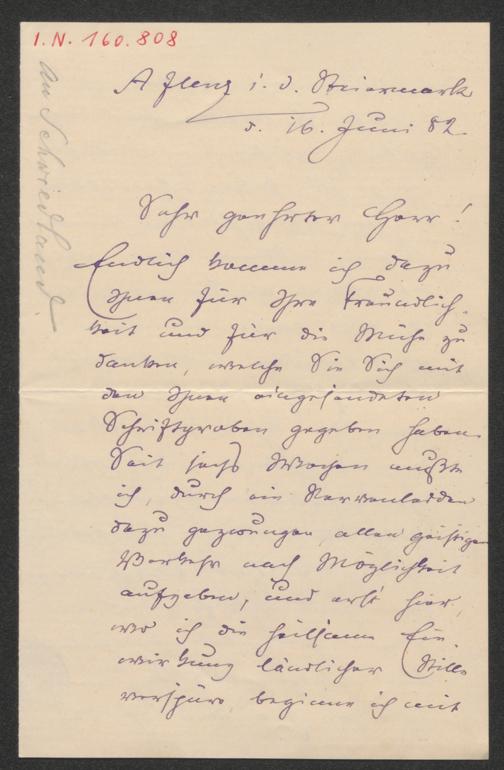 I.N. 160.808
An Schwiedland.
Aflenz i. d. Steiermark
d. 16. Juni 82.
Sehr geehrter Herr!
Endlich komme ich dazu
Ihnen für Ihre Freundlich-
keit und für die Mühe zu
danken, welche Sie Sich mit
den Ihnen eingesendeten
Schriftproben gegeben haben.
Seit sechs Wochen mußte
ich, durch ein Nervenleiden
dazu gezwungen, allen geistigen
Verkehr nach Möglichkeit
aufgeben, und erst hier,
wo ich die heilsame Ein-
wirkung ländlicher Stille
verspüre, beginne ich mit